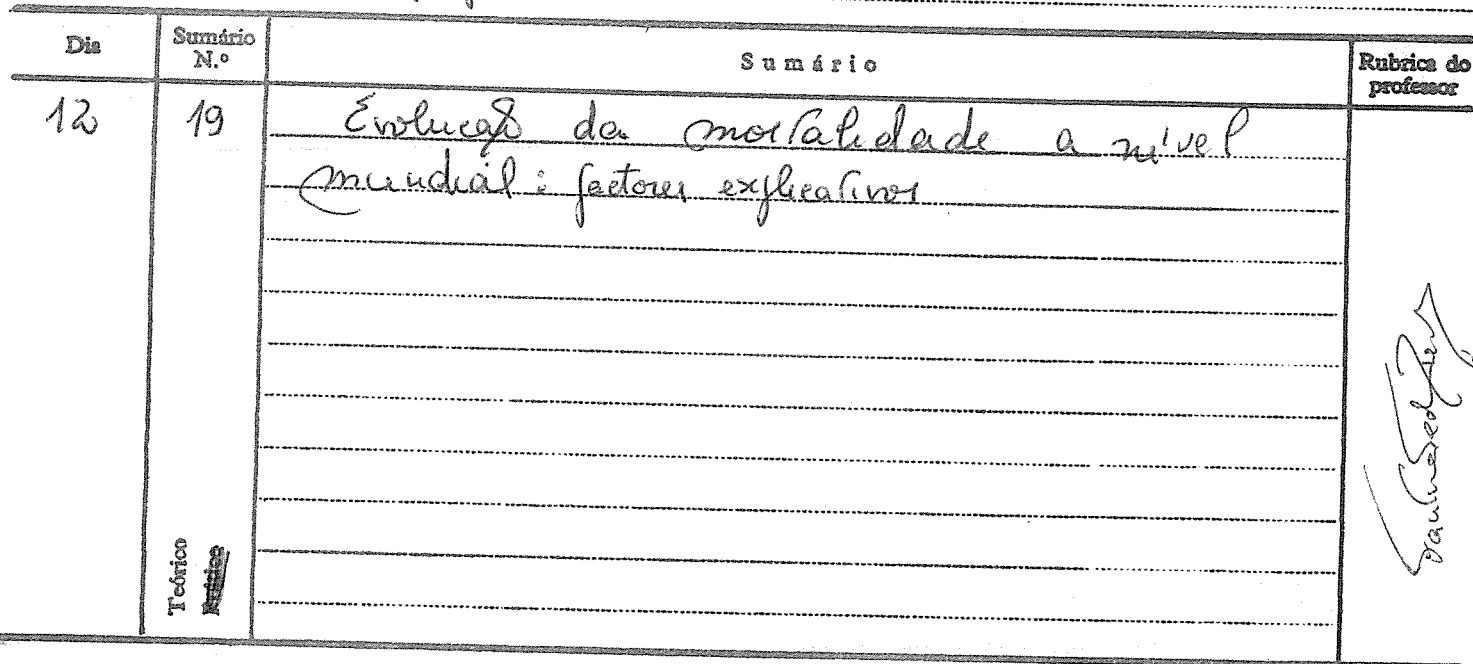 Dia
Sumário
N.º
Sumário
Rubrica do
professor
12
19
Evolução da mortalidade a nível
mundial: factores explicativos
Teórico